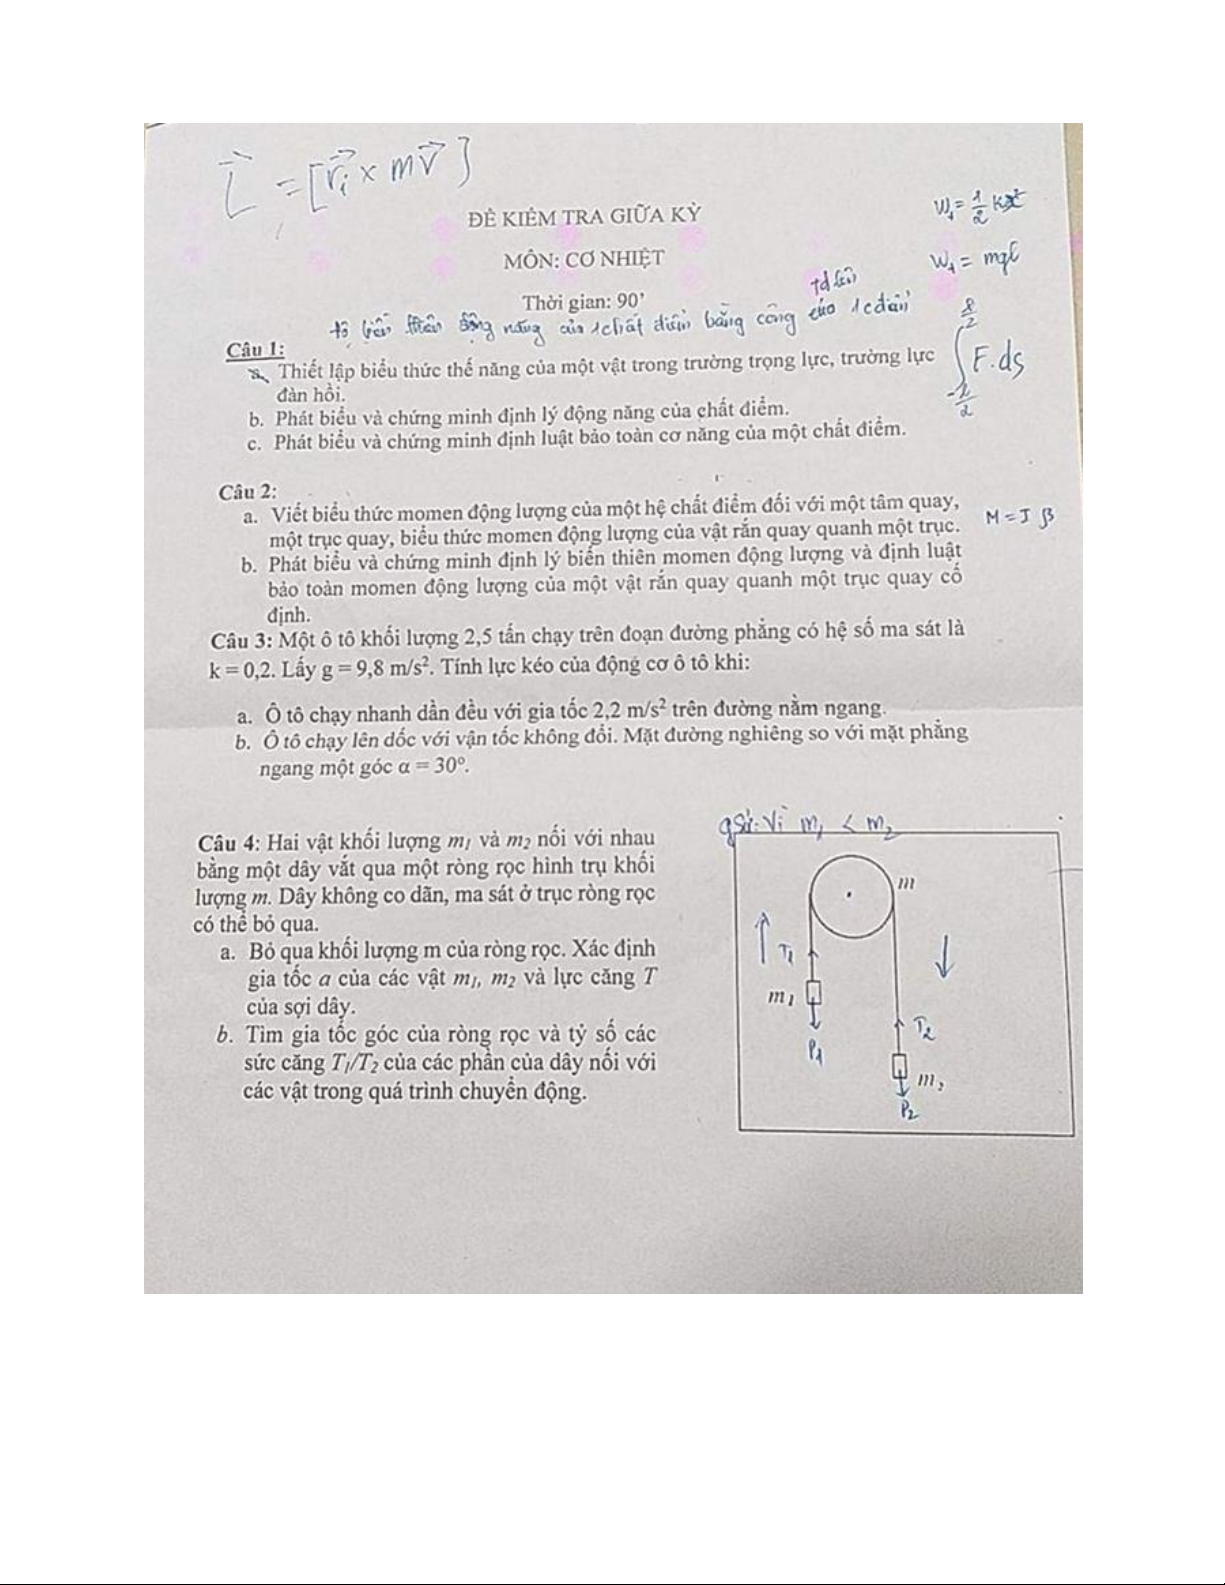 L = [r_i × mv]
ĐỀ KIỂM TRA GIỮA KỲ
W_t = 1/2 kx²
MÔN: CƠ NHIỆT
W_t = mgl
Thời gian: 90’
độ biến thiên động năng của 1 chất điểm bằng công
Câu 1:
a. Thiết lập biểu thức thế năng của một vật trong trường trọng lực, trường lực
đàn hồi.
F.ds
b. Phát biểu và chứng minh định lý động năng của chất điểm.
c. Phát biểu và chứng minh định luật bảo toàn cơ năng của một chất điểm.
Câu 2:
a. Viết biểu thức momen động lượng của một hệ chất điểm đối với một tâm quay,
một trục quay, biểu thức momen động lượng của vật rắn quay quanh một trục.
M = I β
b. Phát biểu và chứng minh định lý biến thiên momen động lượng và định luật
bảo toàn momen động lượng của một vật rắn quay quanh một trục quay cố
định.
Câu 3: Một ô tô khối lượng 2,5 tấn chạy trên đoạn đường phẳng có hệ số ma sát là
k = 0,2. Lấy g = 9,8 m/s². Tính lực kéo của động cơ ô tô khi:
a. Ô tô chạy nhanh dần đều với gia tốc 2,2 m/s² trên đường nằm ngang.
b. Ô tô chạy lên dốc với vận tốc không đổi. Mặt đường nghiêng so với mặt phẳng
ngang một góc α = 30°.
Câu 4: Hai vật khối lượng m₁ và m₂ nối với nhau
bằng một dây vắt qua một ròng rọc hình trụ khối
lượng m. Dây không co dãn, ma sát ở trục ròng rọc
có thể bỏ qua.
a. Bỏ qua khối lượng m của ròng rọc. Xác định
gia tốc a của các vật m₁, m₂ và lực căng T
của sợi dây.
b. Tìm gia tốc góc của ròng rọc và tỷ số các
sức căng T₁/T₂ của các phần của dây nối với
các vật trong quá trình chuyển động.
gsử: Vì m₁ < m₂
m
T₁
m₁
P₁
T₂
m₂
P₂